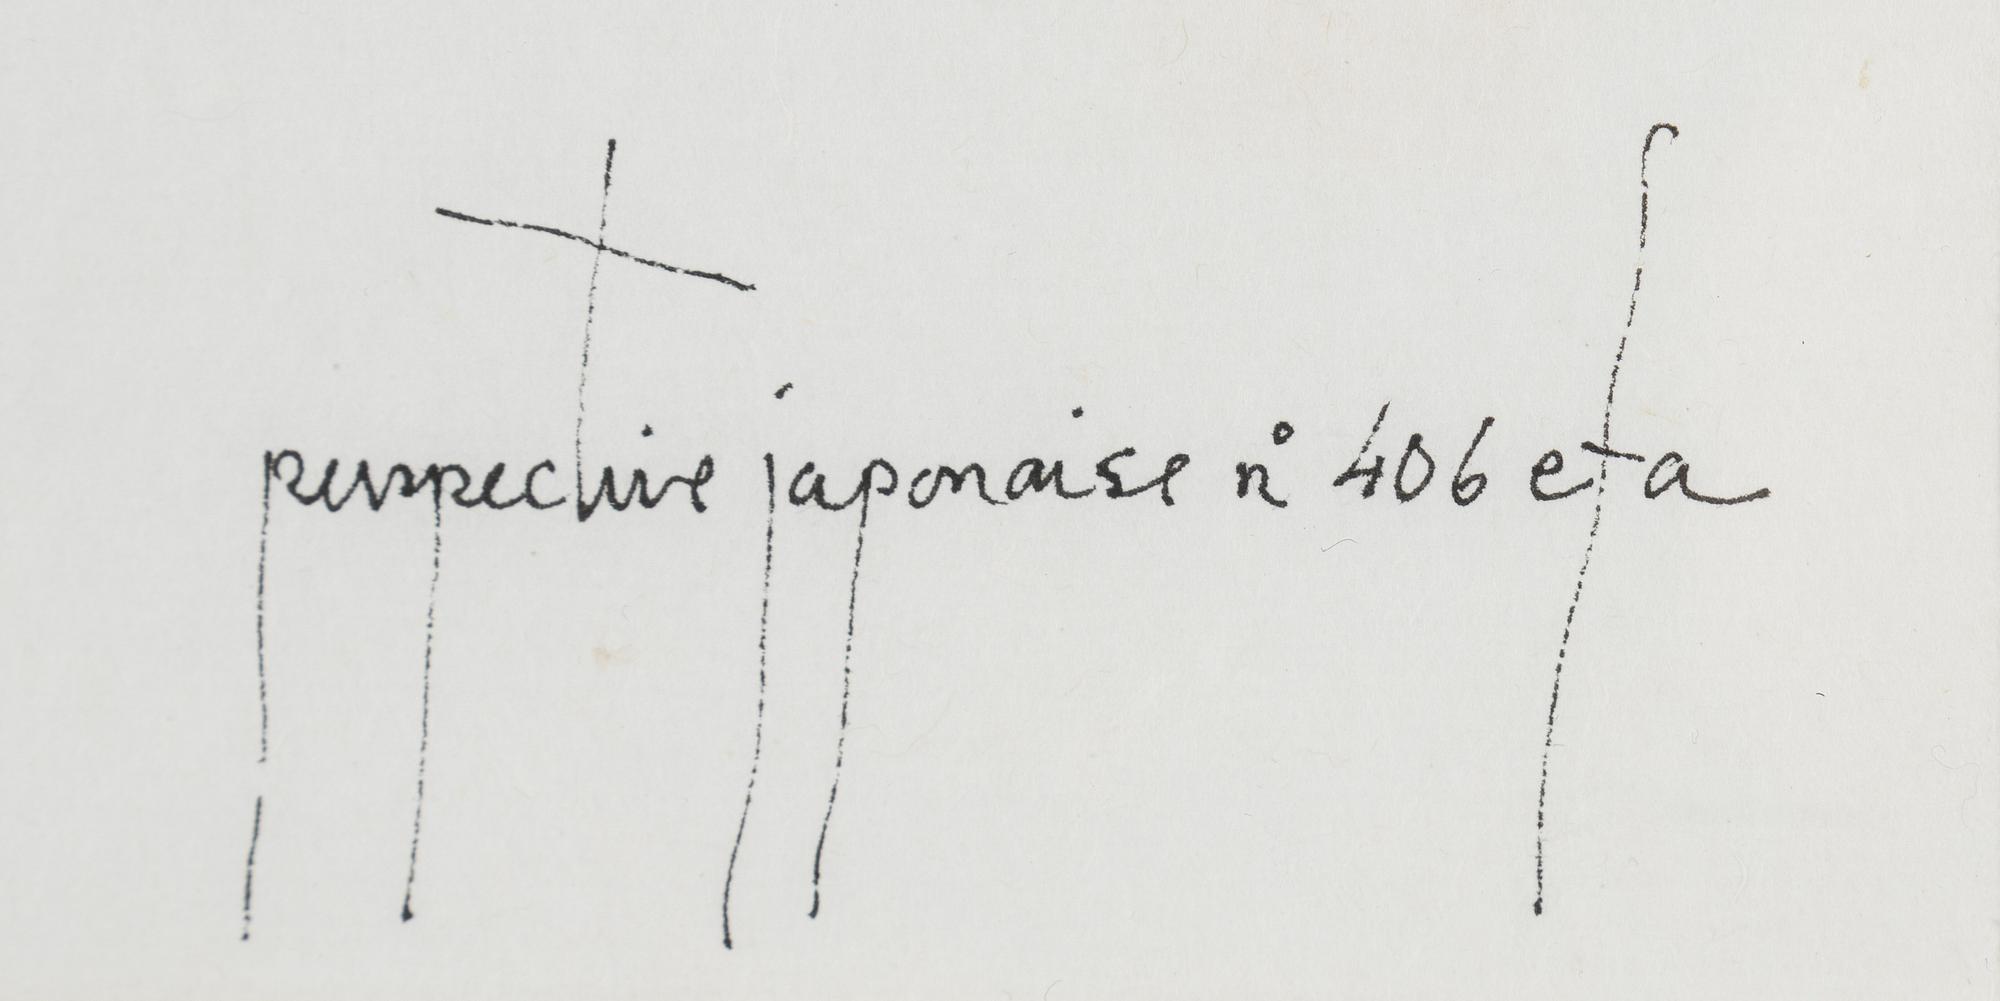 perspective japonaise n° 406 efa